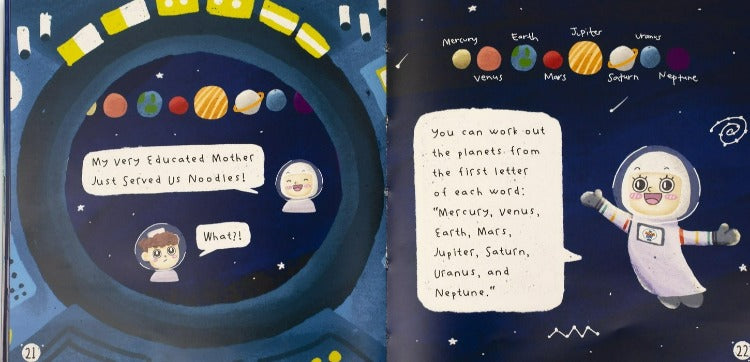 My Very Educated Mother
Just Served Us Noodles!
What?!
21
Mercury
Venus
Earth
Mars
Jupiter
Saturn
Uranus
Neptune
You can work out
the planets from
the first letter
of each word:
"Mercury, Venus,
Earth, Mars,
Jupiter, Saturn,
Uranus, and
Neptune."
22